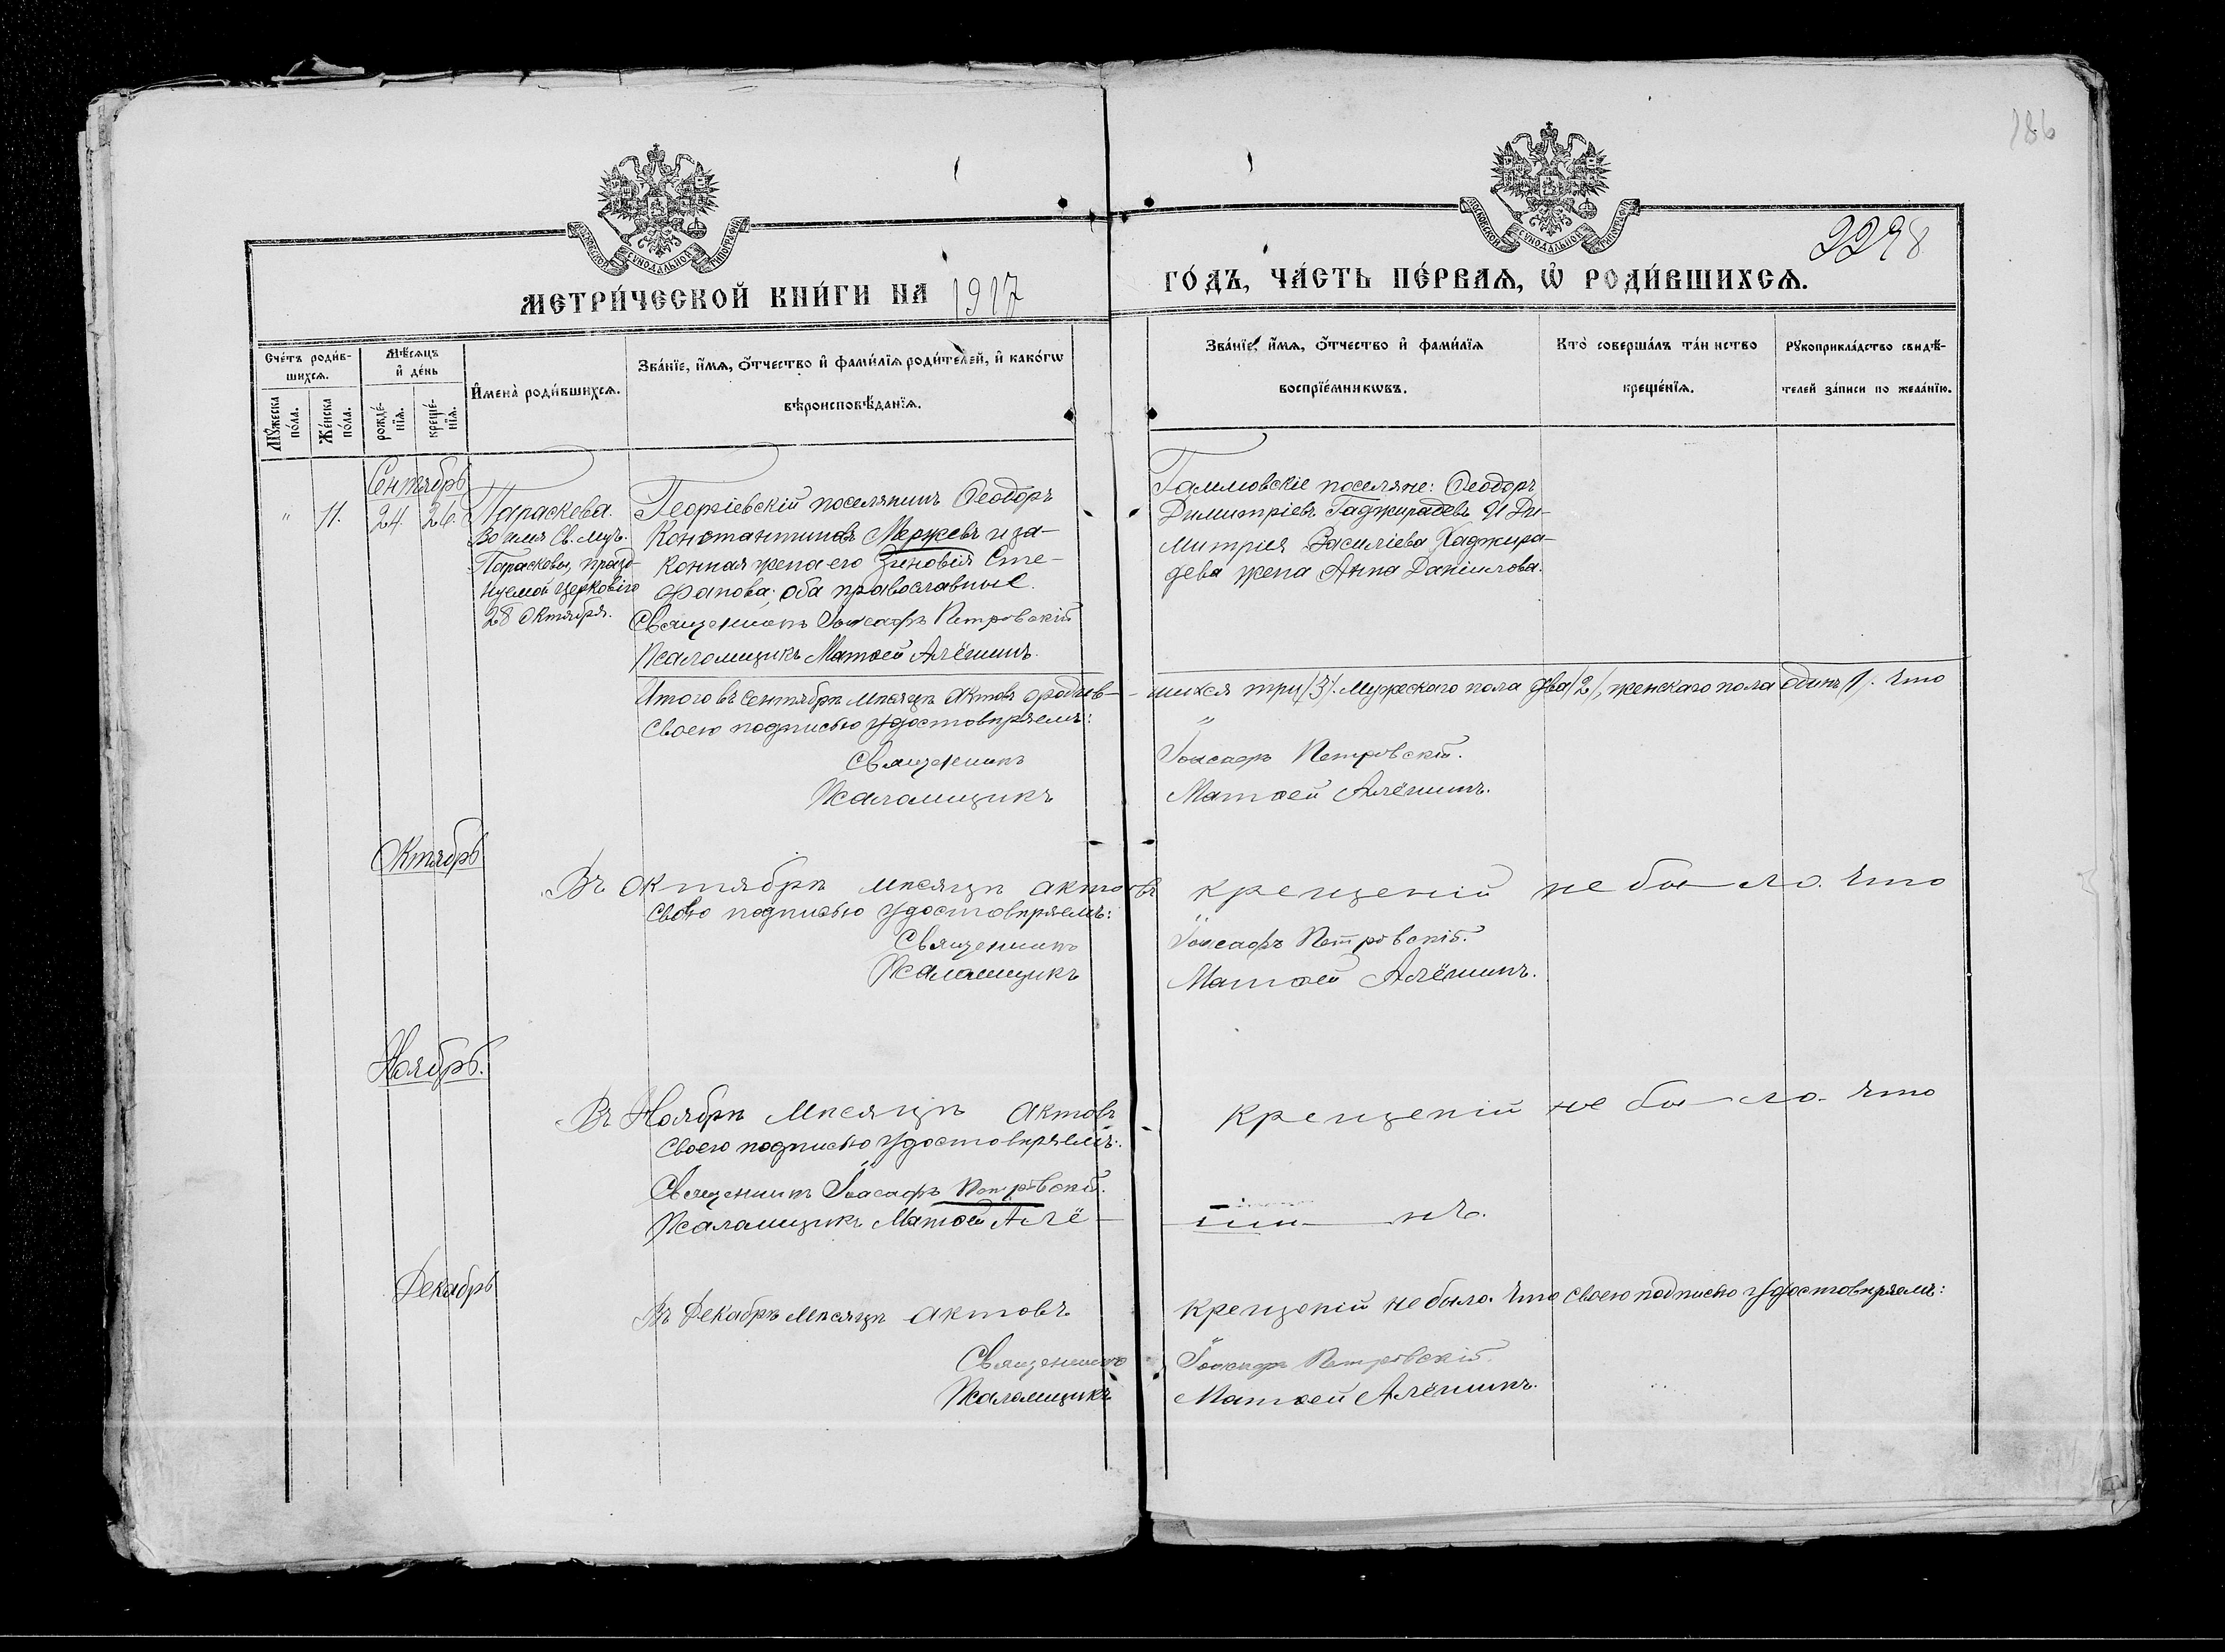 186
2298
МЕТРИ́ЧЕСКОЙ КНИ́ГИ НА 1917 ГО́ДЪ, ЧА́СТЬ ПЕ́РВАѦ, Ѽ РОДИ́ВШИХСѦ.
Сче́тъ роди́в-
шихсѧ.
Мꙋ́жеска по́ла.
Же́нска по́ла.
Мѣ́сѧцъ и҆ де́нь
рожде́-нїѧ.
креще́-нїѧ.
И҆мена̀ роди́вшихсѧ.
Зва́нїе, и҆́мѧ, ѻ҆́тчество и҆ фами́лїѧ роди́телей, и҆ како́гѡ
вѣроисповѣ́данїѧ.
Зва́нїе, и҆́мѧ, ѻ҆́тчество и҆ фами́лїѧ
воспрїе́мникѡвъ.
Кто̀ соверша́лъ та́инство
креще́нїѧ.
Рꙋкоприкла́дство свидѣ́-
телей за́писи по жела́нїю.
Сентябрь
" 11. 24. 26.
Параскева.
Во имя Св. муч.
Параскевы, празд-
нуемой церковію
28 Октября.
Георгіевскій поселянинъ Ѳеодоръ
Константиновъ Мержевъ и за-
конная жена его Зиновія Сте-
фанова; оба православные.
Священникъ Іоасафъ Петровскій
Псаломщикъ Матѳей Алёшинъ.
Ѳеодоръ
Димитріевъ Гаджирадевъ и Ди-
митрія Василіева Хаджира-
дева жена Анна Даніилова.
Итого въ Сентябрѣ мѣсяцѣ актовъ о родив-шихся три /3/. Мужескаго пола два /2/, женскаго пола одинъ /1/. Что
своею подписью удостовѣряемъ:
Священникъ Іоасафъ Петровскій.
Псаломщикъ Матѳей Алёшинъ.
Октябрь
Въ Октябрѣ мѣсяцѣ актовъ крещеній не было. Что
своею подписью удостовѣряемъ:
Священникъ Іоасафъ Петровскій.
Псаломщикъ Матѳей Алёшинъ.
Ноябрь.
Въ Ноябрѣ мѣсяцѣ актовъ крещеній не было. Что
своею подписью удостовѣряемъ:
Священникъ Іоасафъ Петровскій.
Псаломщикъ Матѳей Алё-шинъ.
Декабрь
Въ Декабрѣ мѣсяцѣ актовъ крещеній не было. Что своею подписью удостовѣряемъ:
Священникъ Іоасафъ Петровскій.
Псаломщикъ Матѳей Алёшинъ.